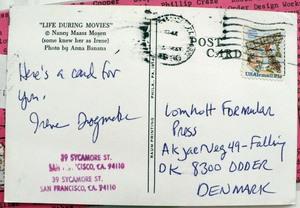 "LIFE DURING MOVIES"
© Nancy Maass Mosen
(some know her as Irene)
Photo by Anna Banana
Here's a card for
you,
Irene Dogmatic
39 SYCAMORE ST.
SAN FRANCISCO, CA. 94110
39 SYCAMORE ST.
SAN FRANCISCO, CA. 94110
POST
CARD
USAirmail
Lomholt Formular
Press
Akjaer Veg 49-Falling
DK 8300 ODDER
DENMARK